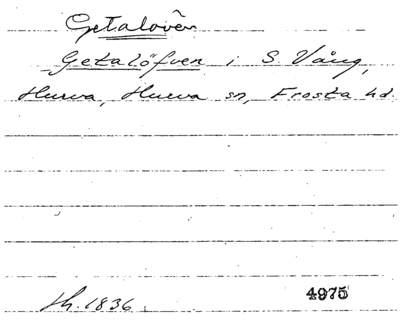 Getalovên
Getalöfven i S. Vång,
Hurva, Hurva sn, Frosta hd.
sk. 1836. 4975